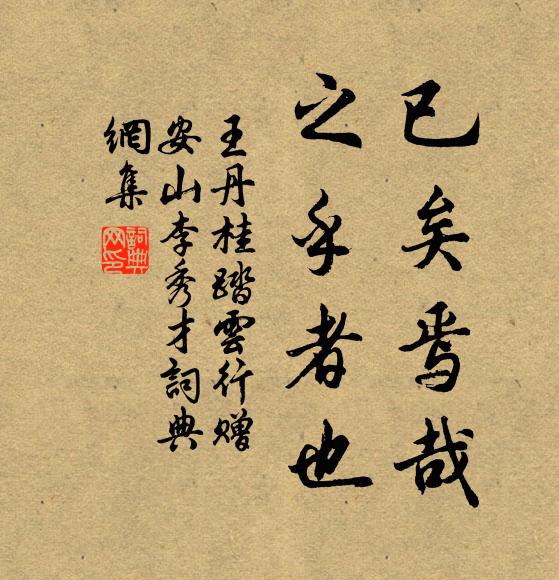 已矣焉哉
之乎者也
王丹桂踏雲行贈
安山李秀才詞典
網集
詞典網印